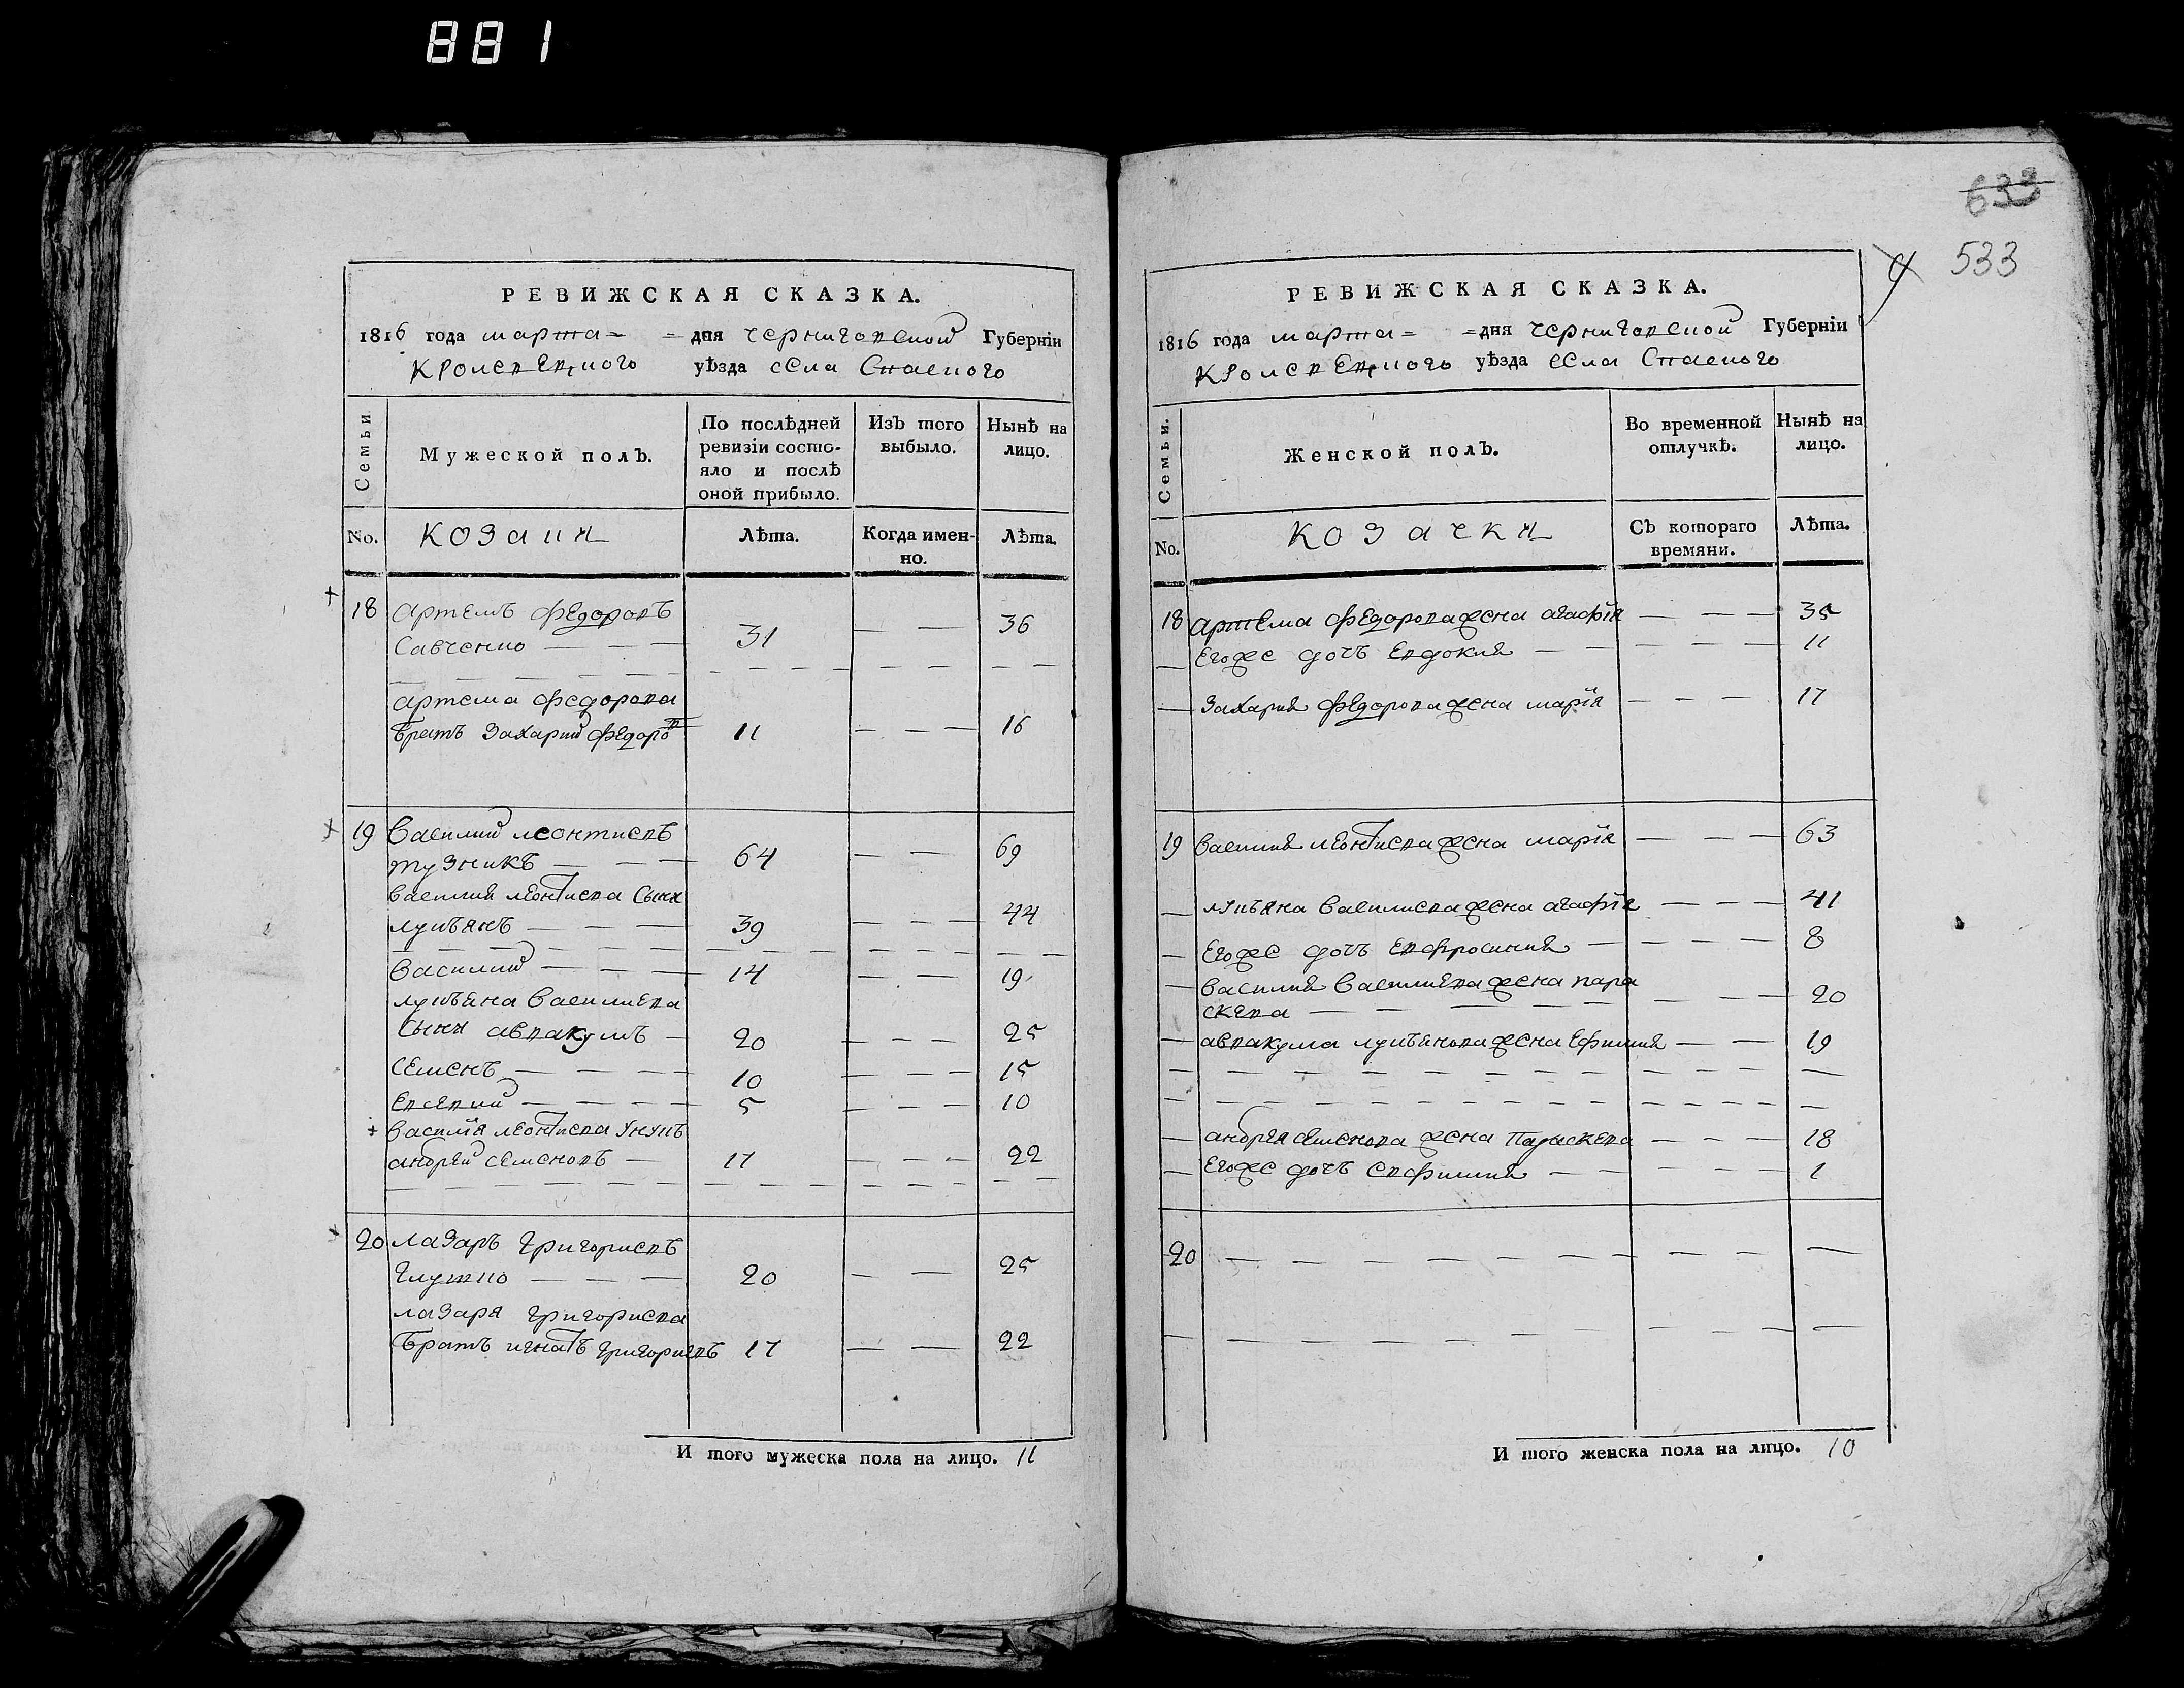 881
633
533
РЕВИЖСКАЯ СКАЗКА.
1816 года марта = = дня Черниговской Губерніи
Кролевецкого уѣзда села Спаского
Семьи
Мужеской полъ.
По послѣдней ревизіи состо-
яло и послѣ
оной прибыло.
Изъ того
выбыло.
Нынѣ на
лицо.
No.
Козаки
Лѣта.
Когда имен-
но.
Лѣта.
18 Артемъ Федоровъ
Савченко — — — 31 — — 36
Артема Федорова
братъ Захарий Федоровъ 11 — — — 16
19 Василий Леонтиевъ
Тузникъ — — — 64 — — 69
Василия Леонтиева сыни
Лукъянъ — — — 39 — — — 44
Василий — — — 14 — — 19
Лукъяна Василиева
сыни Авакумъ — 20 — — — 25
Семенъ — — — — 10 — — — 15
Евсевий — — — — 5 — — — 10
Василія Леонтиева унукъ
Андрей Семеновъ — 17 — — — 22
20 Лазаръ Григориевъ
Глушко — — — 20 — — 25
Лазаря Григориева
братъ Игнатъ Григориевъ 17 — — 22
И того мужеска пола на лицо. 11
РЕВИЖСКАЯ СКАЗКА.
1816 года марта = = дня Черниговской Губерніи
Кролевецкого уѣзда села Спаского
Семьи.
Женской полъ.
Во временной
отлучкѣ.
Нынѣ на
лицо.
No.
Козачки
Съ котораго
времяни.
Лѣта.
18 Артема Федорова жена Агафія — — — 35
— Егоже дочъ Евдокия — — — — 11
— Захария Федорова жена Марія — — — 17
19 Василия Леонтиева жена Марія — — — 63
— Лукъяна Василиева жена Агафія — — — 41
— Егоже дочъ Евфросиния — — — — 8
— Василия Василиева жена Пара
скева — — — — — — 20
— Авакума Лукъянова жена Ефимия — — 19
— Андрея Семенова жена Параскева — — — 18
— Егоже дочъ Евфимия — — — — — 1
20 — — — — — — — — — —
И того женска пола на лицо. 10